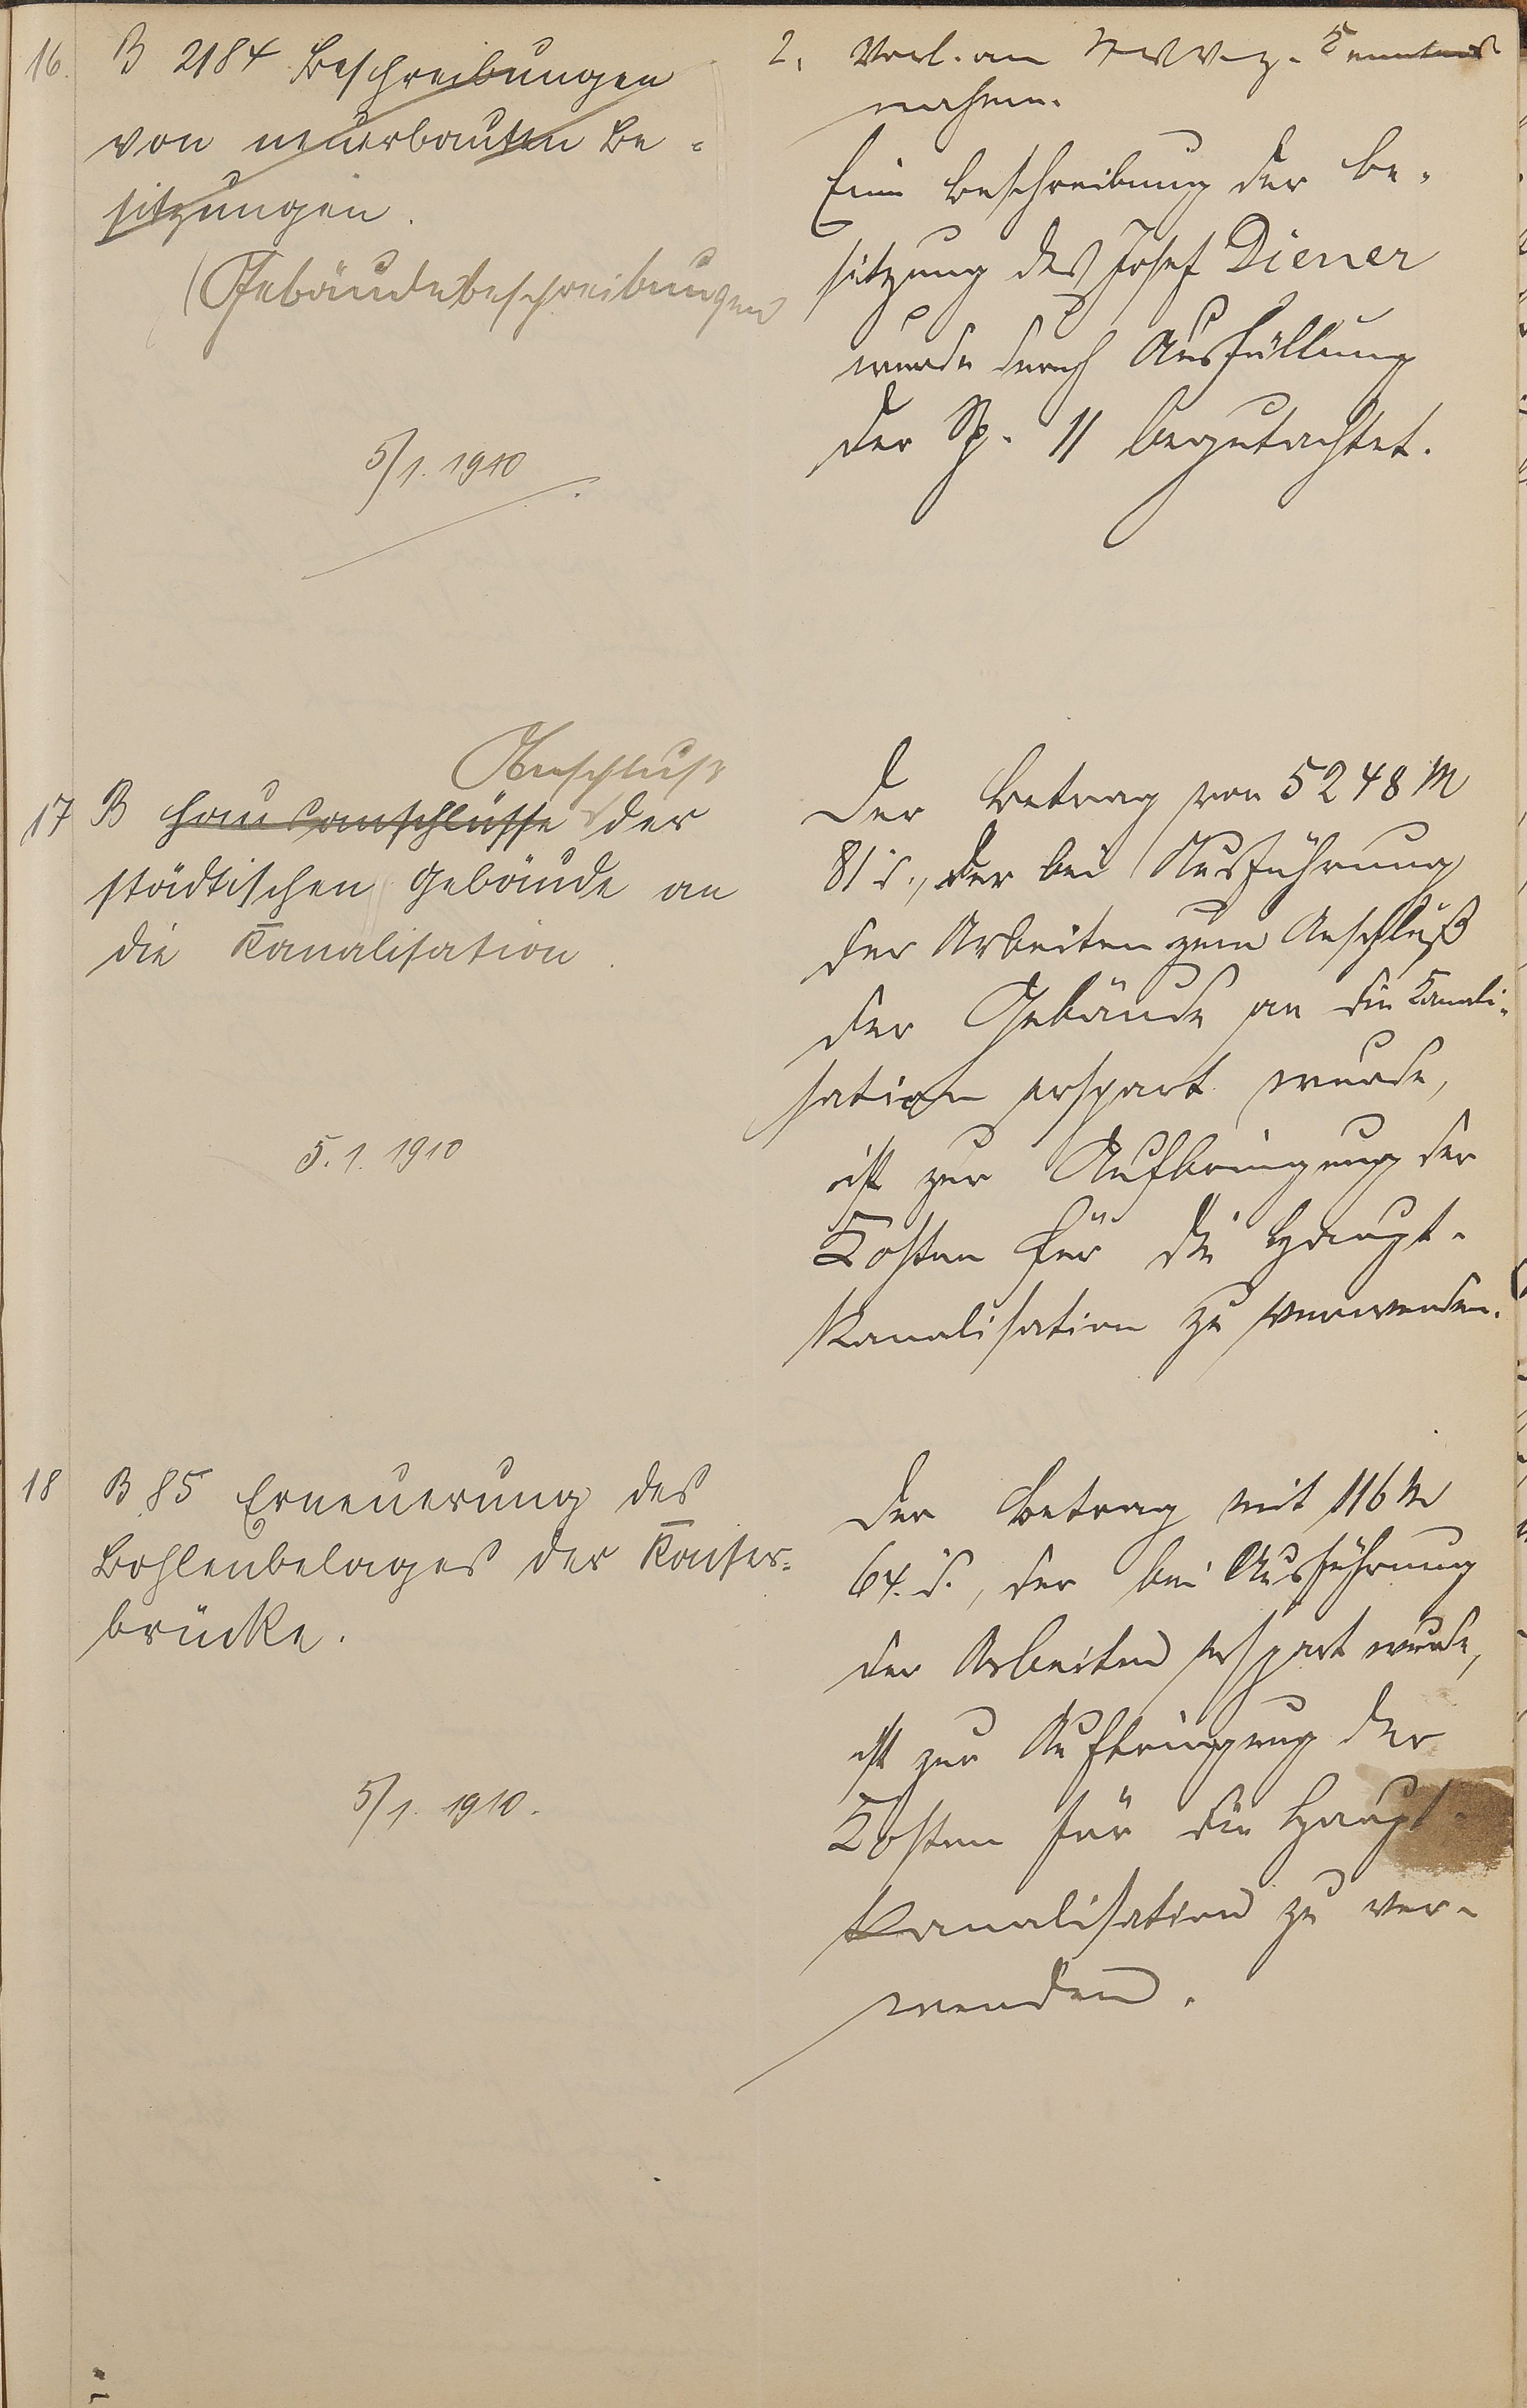 16. B 2184 Beschreibungen
von neuerbauten Be-
sitzungen.
(Gebäudebeschreibungen
5/1. 1910
2. Vorl. an z. Kenntnis
nahme.
Eine Beschreibung der Be-
sitzung des Josef Diener
wurde durch Ausfüllung
der Sp. 11 begutachtet.
Anschluß
17 B Hausanschlüsse der
städtischen Gebäude an
die Kanalisation.
5. 1. 1910
Der Betrag von 5248 M
81 d., der bei Ausführung
der Arbeiten zum Anschluß
der Gebäude an die Kanali-
sation erspart wurde,
ist zur Aufbringung der
Kosten für die Haupt-
Kanalisation zu verwenden.
18 B 85 Erneuerung des
Bohlenbelages der Kaiser-
brücke.
5/1. 1910.
Der Betrag mit 116 M
64. d., der bei Ausführung
der Arbeiten erspart wurde,
ist zur Aufbringung der
Kosten für die Haupt-
Kanalisation zu ver-
wenden.